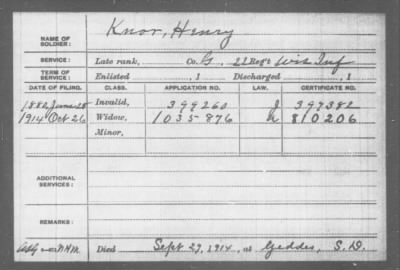 NAME OF SOLDIER: Knor, Henry
SERVICE: Late rank, Co. G, 22 Reg't Wis Inf
TERM OF SERVICE: Enlisted , 1 Discharged , 1
DATE OF FILING. CLASS. APPLICATION NO. LAW. CERTIFICATE NO.
1880 June 28 Invalid, 399260 J 397382
1914 Oct 26 Widow, 1035876 810206
Minor,
ADDITIONAL SERVICES:
REMARKS:
Died Sept 27, 1914, at Geddes, S.D.